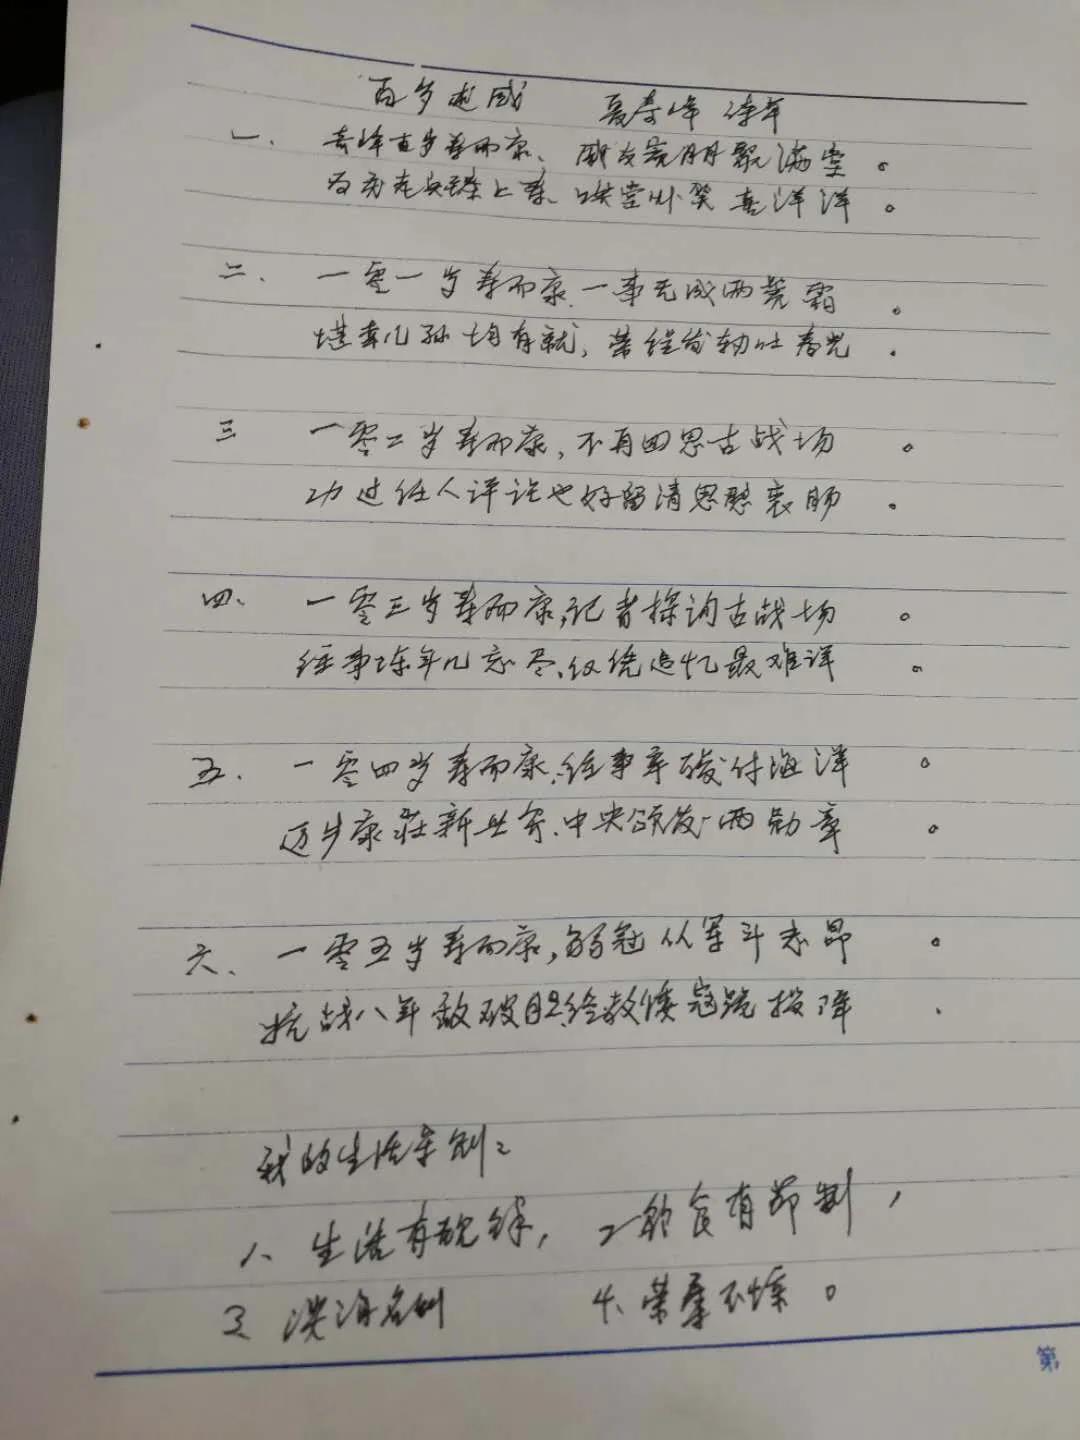 百岁述感 夏奇峰 待年
一、 奇峰百岁寿而康、 戚友宾朋聚满堂。
为我老头躁上寿、哄堂吵笑喜洋洋。
二、 一零一岁寿而康、一事无成两鬓霜。
堪幸儿孙均有就,荣程发轫吐春光.
三 一零二岁寿而康,不再回思古战场。
功过任人评说也好留清思慰衷肠。
四、 一零三岁寿而康,记者探询古战场。
往事陈年几忘尽、仅凭追忆最难详。
五、 一零四岁寿而康、往事辛酸付海洋。
迈步康庄新世界、中央颁发两勋章。
六、 一零五岁寿而康,弱冠从军斗志昂。
抗战八年敌破胆终教倭寇跪投降.
我的生活条例:
1、生活有规律, 2、饮食有节制,
3、淡泊名利 4、荣辱不惊。
第